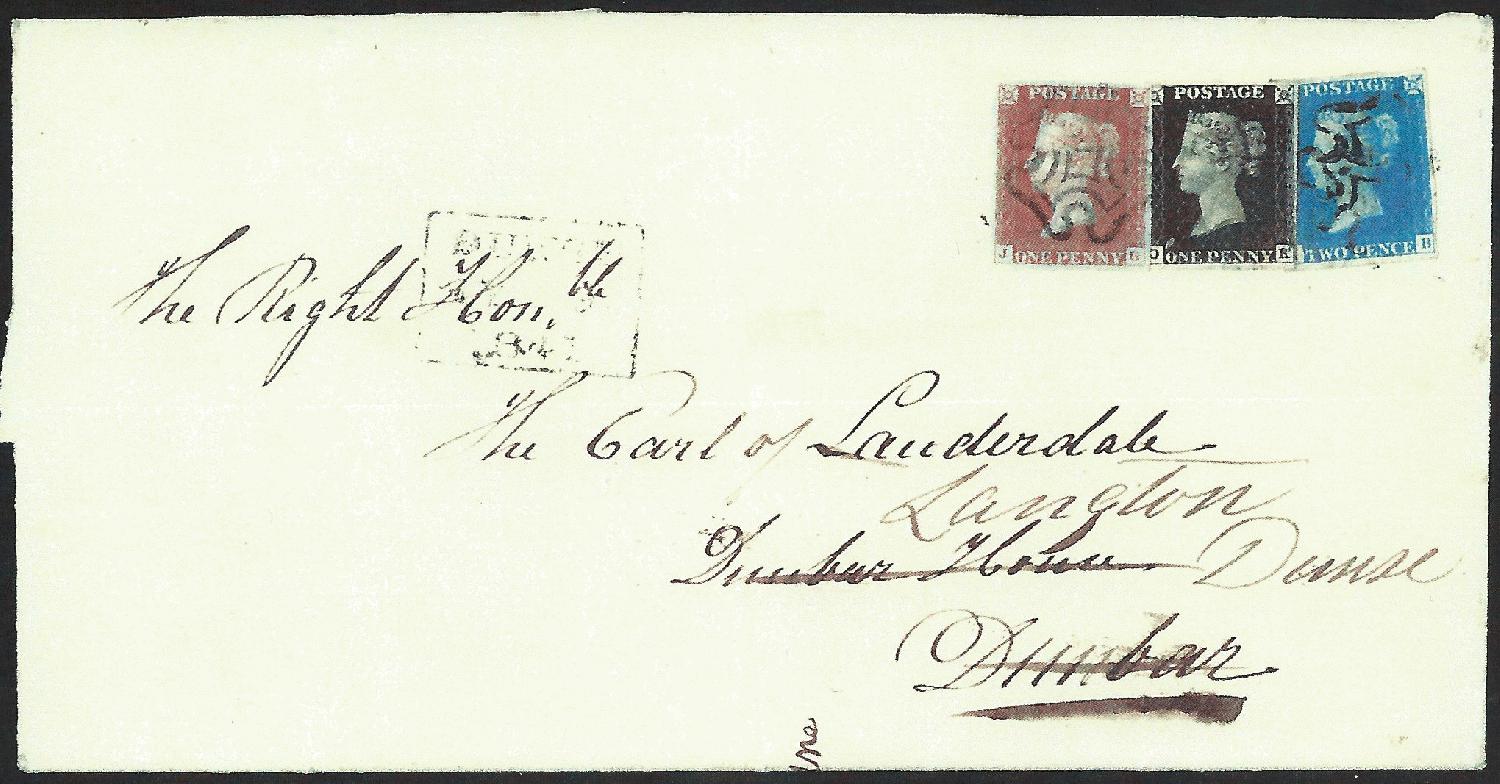 POSTAGE POSTAGE POSTAGE
J ONE PENNY G ONE PENNY K TWO PENCE B
The Right Hon.ble
1841
The Earl of Lauderdale
Langton
Dunbar House Dunse
Dunbar